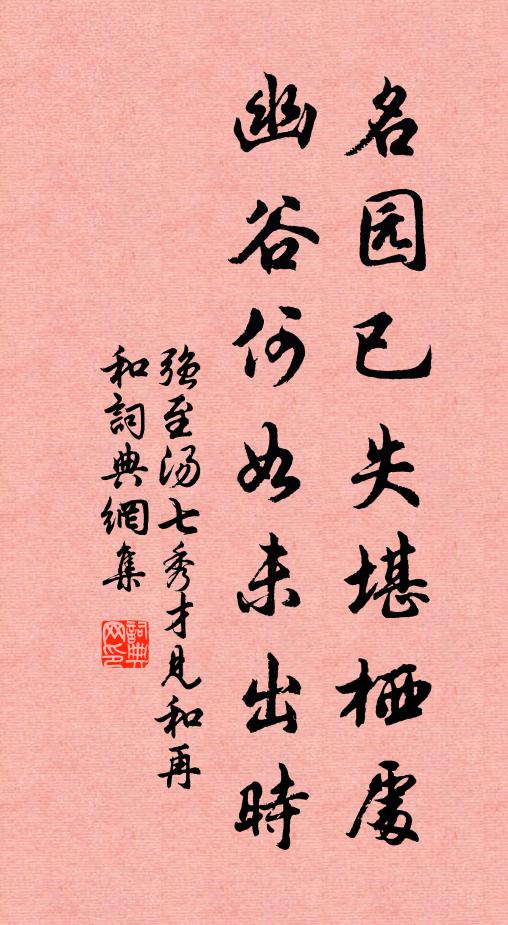 名园已失堪栖處
幽谷何如未出時
強至汤七秀才見和再
和詞典網集
詞典网印